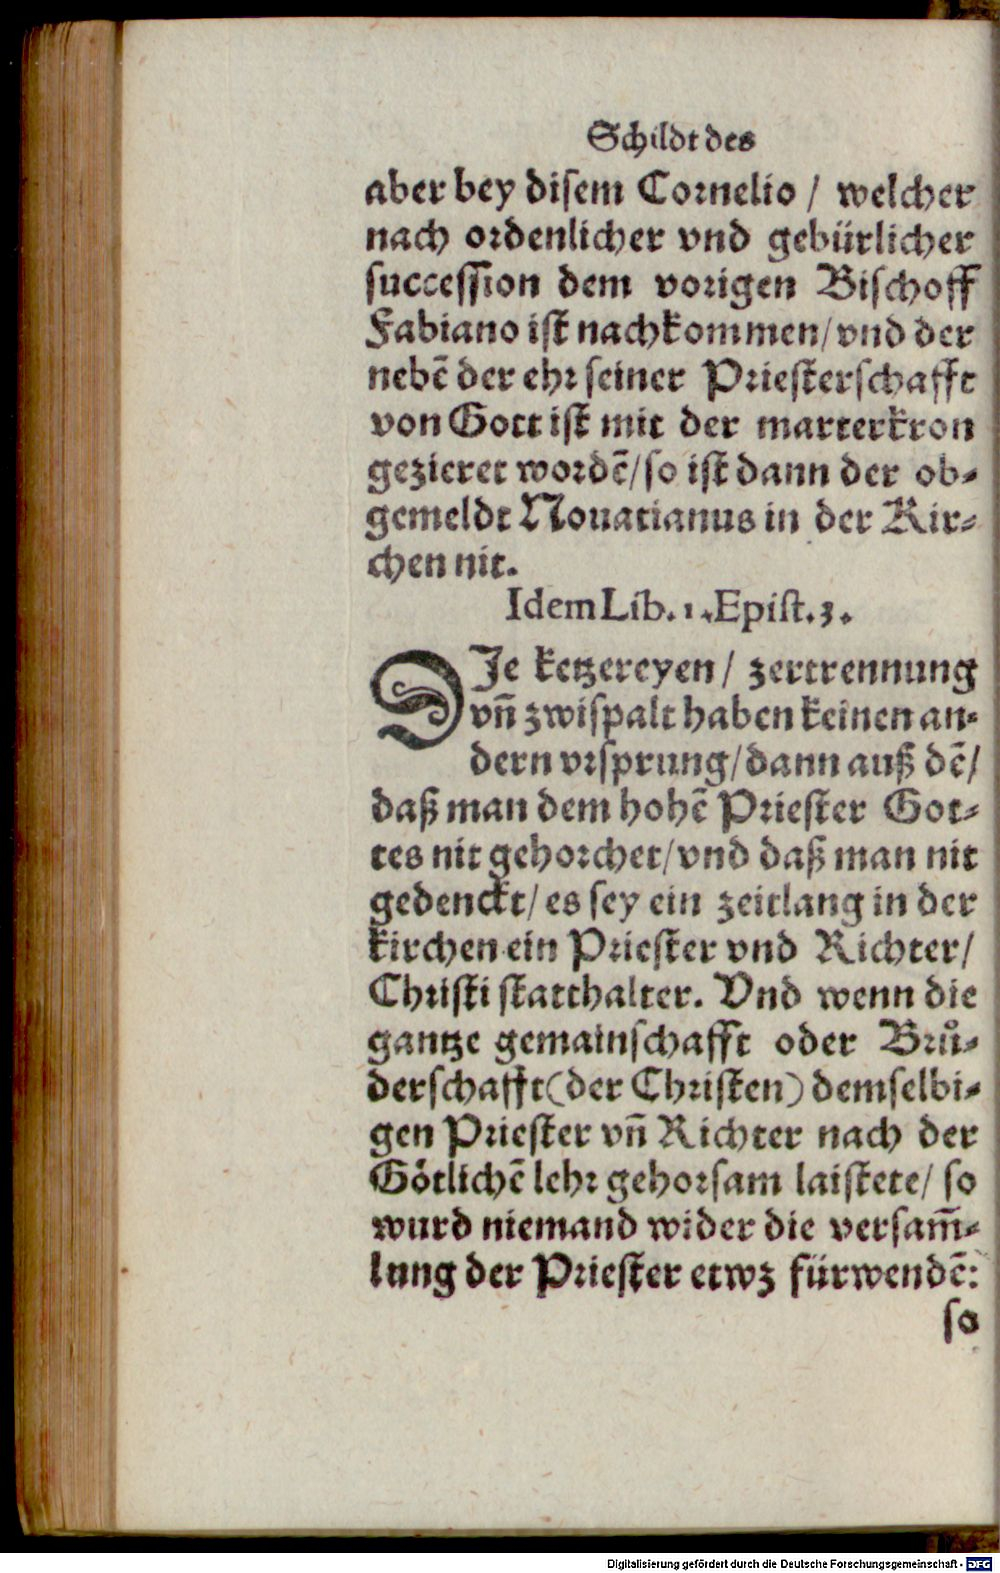 Schildt des
aber bey disem Cornelio / welcher
nach ordenlicher vnd gebürlicher
succession dem vorigen Bischoff
Fabiano ist nachkommen/ vnd der
nebē der ehr seiner Priesterschafft
von Gott ist mit der marterkron
gezieret wordē/ so ist dann der ob⸗
gemeldt Nouatianus in der Kir⸗
chen nit.
Idem Lib. 1. Epist. 3.
DIe ketzereyen / zertrennung
vñ zwispalt haben keinen an⸗
dern vrsprung/ dann auß dē/
daß man dem hohē Priester Got⸗
tes nit gehorchet/ vnd daß man nit
gedenckt/ es sey ein zeitlang in der
kirchen ein Priester vnd Richter/
Christi statthalter. Vnd wenn die
gantze gemainschafft oder Brů⸗
derschafft (der Christen) demselbi⸗
gen Priester vñ Richter nach der
Götlichē lehr gehorsam laistete/ so
wurd niemand wider die versam̄⸗
lung der Priester etwz fürwendē:
so
Digitalisierung gefördert durch die Deutsche Forschungsgemeinschaft - DFG